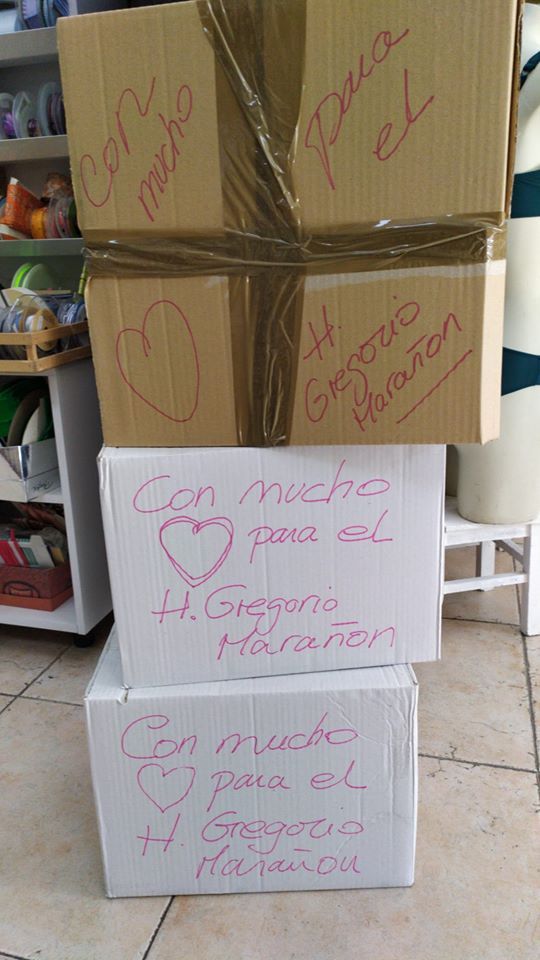 Con
mucho
para
el
H.
Gregorio
Marañon
Con mucho
para el
H. Gregorio
Marañon
Con mucho
para el
H. Gregorio
Marañon